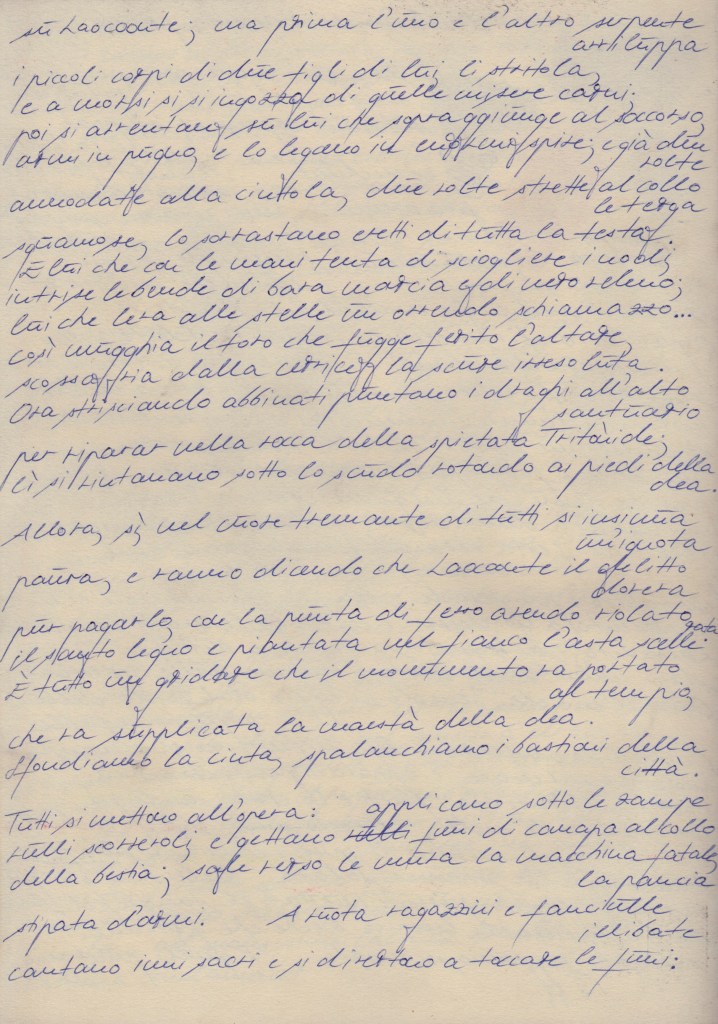 su Laocoonte; ma prima l'uno e l'altro serpente
avviluppa
i piccoli corpi di due figli di lui, li stritola,
e a morsi si ingozza di quelle misere carni;
poi si avventano su lui che sopraggiunge al soccorso,
armi in pugno, e lo legano in enormi spire; e già due
volte
annodate alla cintola, due volte strette al collo
le terga
squamose, lo sovrastano eretti di tutta la testa.
E lui che con le mani tenta di sciogliere i nodi,
intrise le bende di bava marcia e di nero veleno;
lui che leva alle stelle un orrendo schiamazzo...
così mugghia il toro che fugge ferito l'altare,
scossa via dalla cervice la scure irresoluta.
Ora strisciando abbinati puntano i draghi all'alto
santuario
per riparar nella rocca della spietata Tritònide;
lì si rintanano sotto lo scudo rotondo ai piedi della
dea.
Allora, sì, nel cuore tremante di tutti si insinua
un'ignota
paura, e vanno dicendo che Laocoonte il delitto
doveva
pur pagarlo, con la punta di ferro avendo violato
il santo legno e piantata nel fianco l'asta scelle-
rata.
È tutto un gridare che il monumento va portato
al tempio,
che va supplicata la maestà della dea.
Sfondiamo la cinta, spalanchiamo i bastioni della
città.
Tutti si mettono all'opera: applicano sotto le zampe
rulli scorrevoli, e gettano funi di canapa al collo
della bestia; sale verso le mura la macchina fatale,
la pancia
stipata d'armi. A ruota ragazzini e fanciulle
illibate
cantano inni sacri e si divertono a toccare le funi: